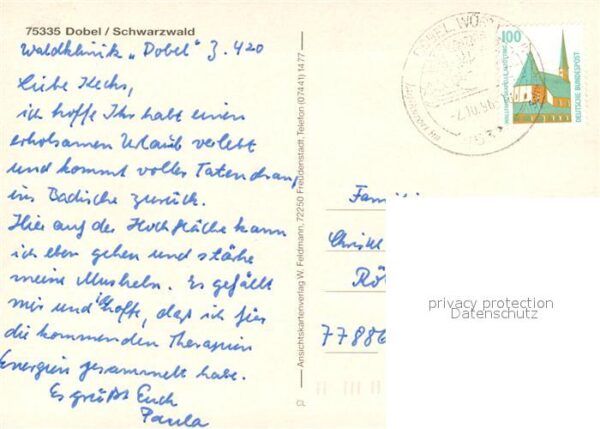 75335 Dobel / Schwarzwald
Waldklinik „Dobel" Z. 420
Liebe Kechs,
ich hoffe Ihr habt einen
erholsamen Urlaub verlebt
und kommt voller Tatendrang
ins Badische zurück.
Hier auf der Hochfläche kann
ich eben gehen und stärke
meine Muskeln. Es gefällt
mir und ich hoffe, daß ich für
die kommenden Therapien
Energien gesammelt habe.
Es grüßt Euch
Paula
Ansichtskartenverlag W. Feldmann, 72250 Freudenstadt, Telefon (07441) 1477
CL
DOBEL, WÜRTT
100
DEUTSCHE BUNDESPOST
Familie
Christel
Rö
77886
privacy protection
Datenschutz